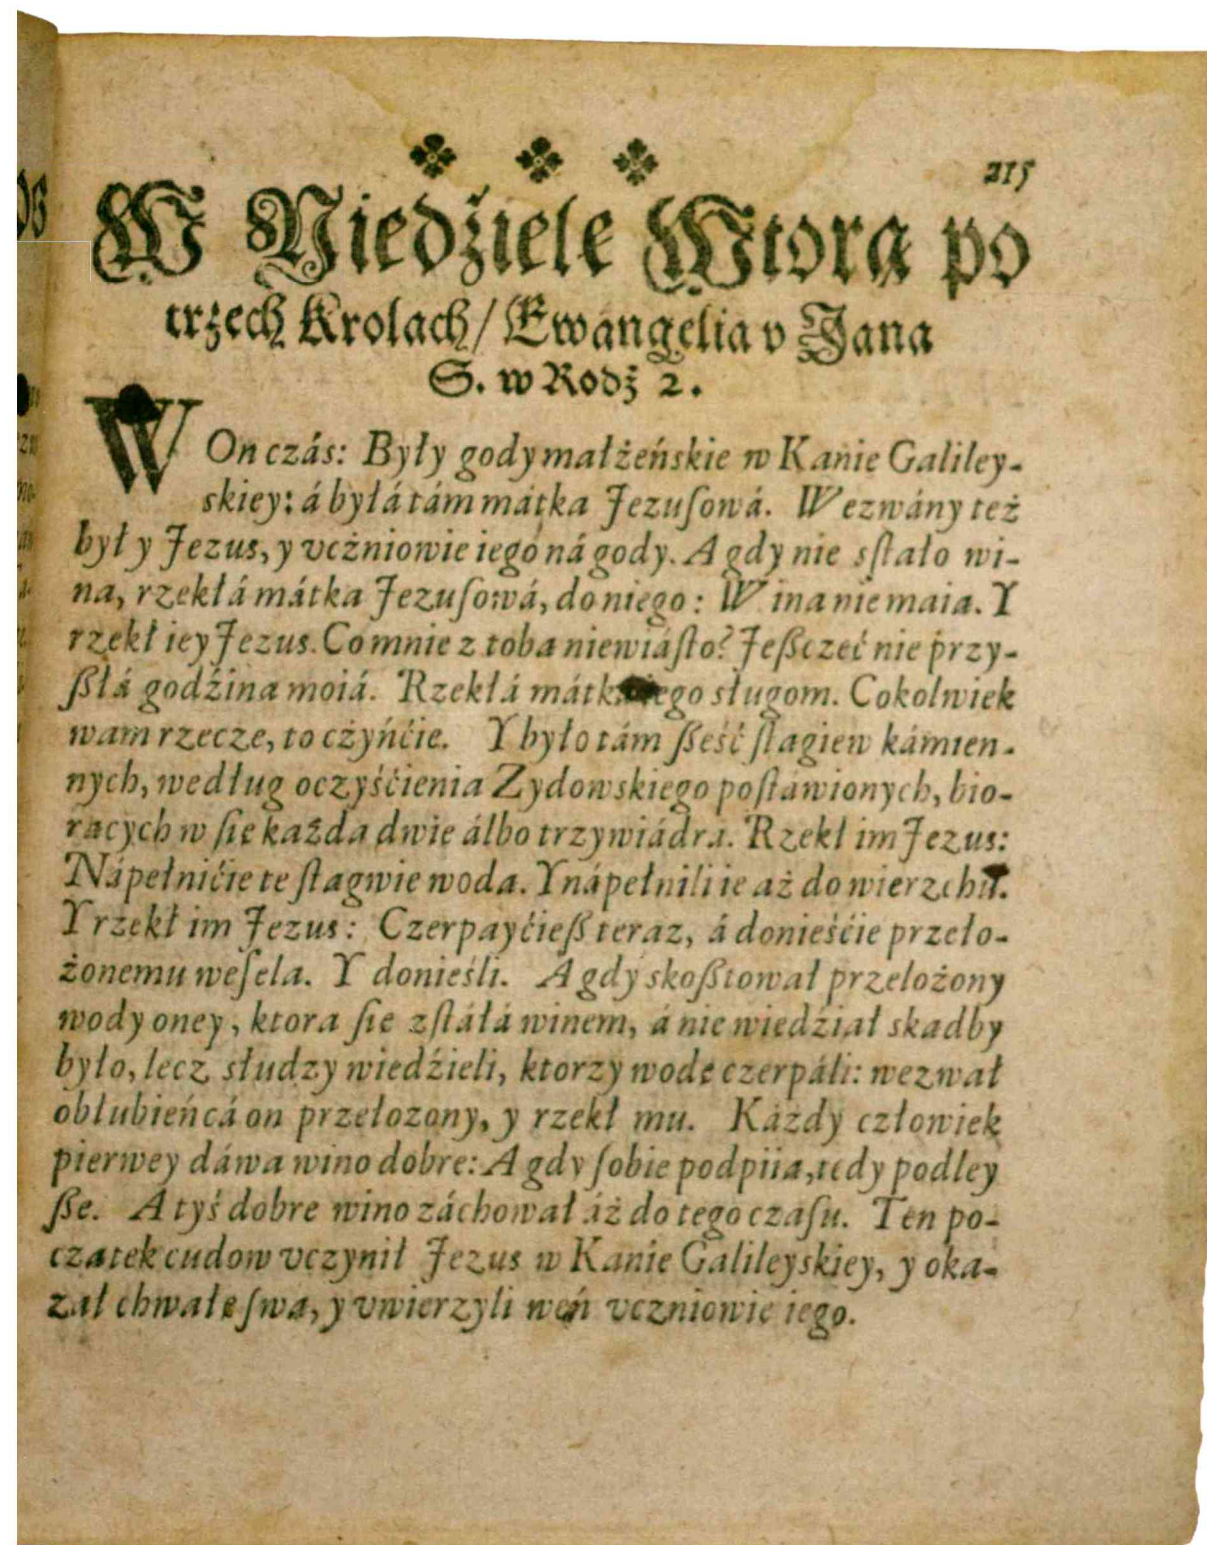 215
W Niedźiele Wtorą po
trzech Krolach/ Ewangelia v Jana
S. w Rodź 2.
W On czás: Były gody małżeńskie w Kanie Galiley-
skiey: á byłá tám mátka Jezuſowá. Wezwány też
był y Jezus, y vcżniowie iego ná gody. A gdy nie sſtało wi-
na, rzekłá mátka Jezuſowá, do niego: Wina nie maia. Y
rzekł iey Jezus. Co mnie z toba niewiáſto? Jeßczeć nie przy-
ßłá godźina moiá. Rzekłá mátka iego sługom. Cokolwiek
wam rzecze, to cżyńćie. Y było tám ßeść ſtagiew kámien-
nych, według oczyśćienia Zydowskiego poſtáwionych, bio-
racych w ſie każda dwie álbo trzy wiádra. Rzekł im Jezus:
Nápełnićie te ſtagwie woda. Y nápełnili ie aż do wierzchu.
Y rzekł im Jezus: Czerpayćieß teraz, á donieśćie przeło-
żonemu weſela. Y donieśli. A gdy skoßtował przelożony
wody oney, ktora ſie zſtáłá winem, á nie wiedźiał skadby
było, lecz słudzy wiedźieli, ktorzy wode czerpáli: wezwał
oblubieńcá on przełozony, y rzekł mu. Káżdy człowiek
pierwey dáwa wino dobre: A gdy ſobie podpiia, tedy podley
ße. A tyś dobre wino záchował áż do tego czaſu. Ten po-
czatek cudow vczynił Jezus w Kanie Galileyskiey, y oka-
zał chwałe ſwa, y vwierzyli weń vczniowie iego.